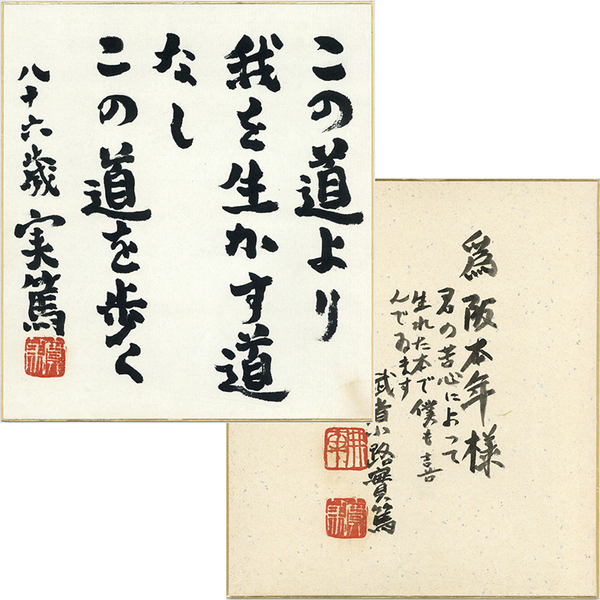 この道より
我を生かす道
なし
この道を歩く
八十六歳 実篤
為阪本年様
君の苦心によって
生れた本で僕も喜
んでゐます
武者小路實篤